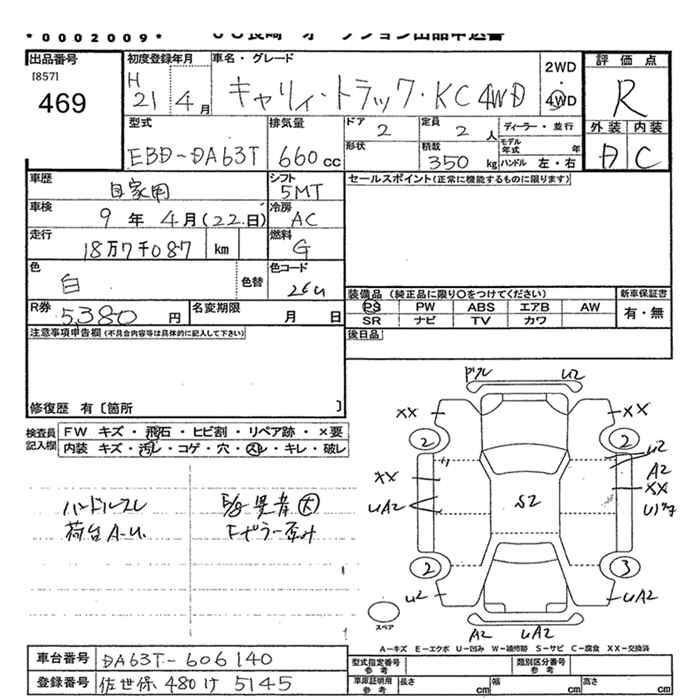 *0002009*
出品番号
[857]
469
初度登録年月
H 21年 4月
車名・グレード
キャリィ・トラック・KC 4WD
2WD・4WD
評価点
R
外装 内装
D C
型式
EBD-DA63T
排気量
660cc
ドア 2
定員 2人
ディーラー・並行
形状
積載 350kg
モデル年式 年
ハンドル 左・右
車歴
自家用
シフト
5MT
セールスポイント(正常に機能するものに限ります)
車検
9年4月(22.日)
冷房
AC
走行
18万7千087 km
燃料
G
色
白
色替
色コード
26U
装備品 (純正品に限り○をつけてください)
新車保証書
PS PW ABS エアB AW
有・無
SR ナビ TV カワ
R券
5,380円
名変期限 月 日
後日品
注意事項申告欄(不具合内容等は具体的に記入して下さい)
修復歴 有〔箇所 〕
検査員記入欄
FW キズ・飛石・ヒビ割・リペア跡・×要
内装 キズ・汚レ・コゲ・穴・スレ・キレ・破レ
ハンドルスレ
荷台A-U.
E/g異音大
Fピラー歪み
U2
XX
XX
2
2
U2
A2
XX
XX
UA2
S2
2
3
U2
UA2
A2
UA2
スペア
A-キズ E-エクボ U-凹み W-補修跡 S-サビ C-腐食 XX-交換済
車台番号
DA63T-606140
登録番号
佐世保 480 け 5145
型式指定番号参考
類別区分番号参考
車庫証明用参考
長さ cm
幅 cm
高さ cm